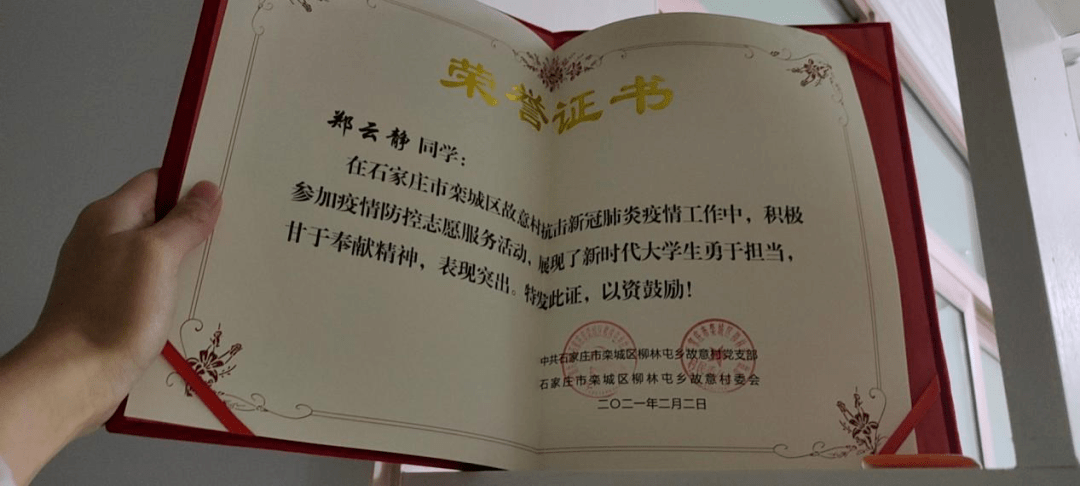 荣誉证书
郑云静 同学：
在石家庄市栾城区故意村抗击新冠肺炎疫情工作中，积极
参加疫情防控志愿服务活动，展现了新时代大学生勇于担当，
甘于奉献精神，表现突出。特发此证，以资鼓励！
中共石家庄市栾城区柳林屯乡故意村党支部
石家庄市栾城区柳林屯乡故意村委会
二〇二一年二月二日